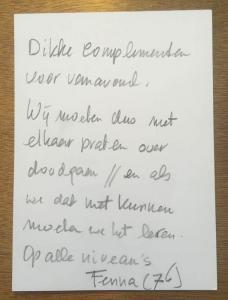 Dikke complementen
voor vanavond.
Wij moeten dus met
elkaar praten over
doodgaan // en als
we dat niet kunnen
moeten we het leren.
Op alle niveau's
Fenna (76)